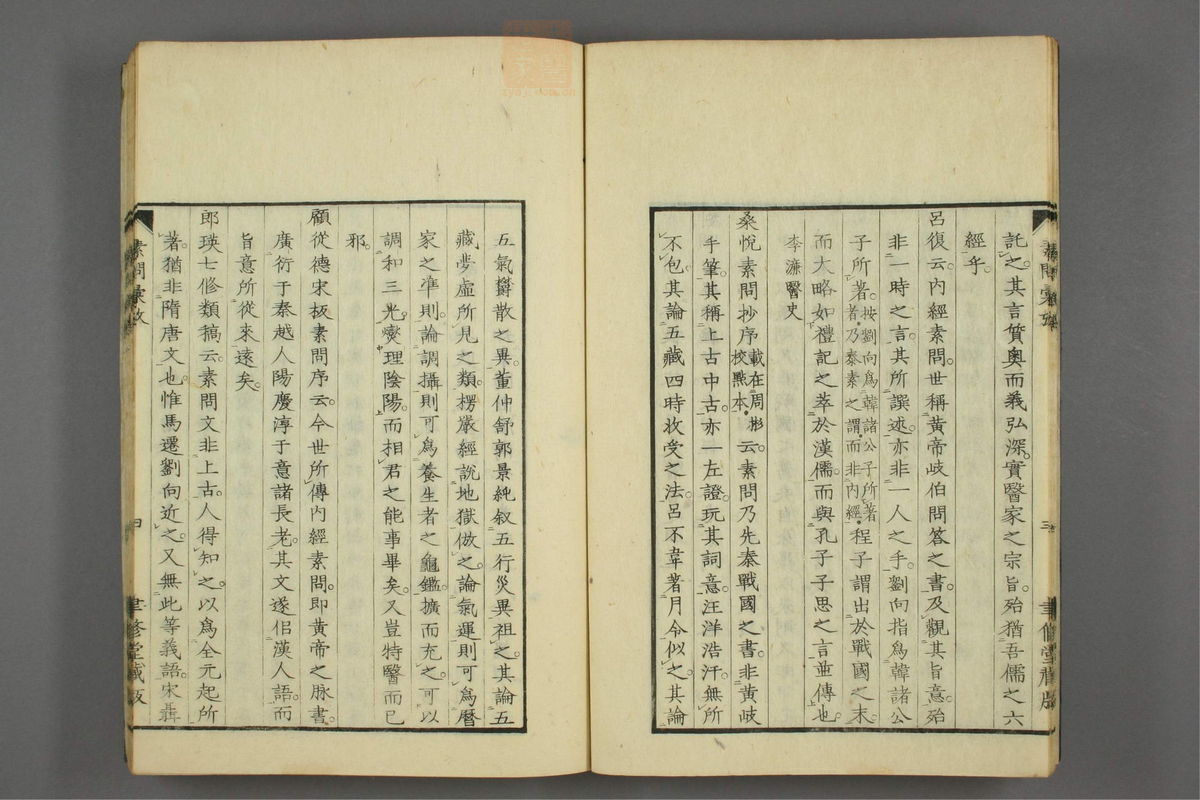 託之其言質奧而義弘深實醫家之宗旨殆猶吾儒之六
經乎
呂復云內經素問世稱黃帝岐伯問答之書及觀其旨意殆
非一時之言其所譔述亦非一人之手劉向指為韓諸公
子所著按劉向為韓諸公子所著者乃泰素之謂而非內經程子謂出於戰國之末
而大略如禮記之萃於漢儒而與孔子子思之言並傳也
李濂醫史
桑悅素問抄序載在周彬校點本云素問乃先秦戰國之書非黃岐
手筆其稱上古中古亦一左證玩其詞意汪洋浩汗無所
不包其論五藏四時收受之法呂不韋著月令似之其論
五氣鬱散之異董仲舒郭景純敘五行災異祖之其論五
藏夢虛所見之類楞嚴經說地獄倣之論氣運則可為曆
家之準則論調攝則可為養生者之龜鑑擴而充之可以
調和三光燮理陰陽而相君之能事畢矣又豈特醫而已
邪
顧從德宋板素問序云今世所傳內經素問即黃帝之脈書
廣衍于秦越人陽慶淳于意諸長老其文遂佀漢人語而
旨意所從來遠矣
郎瑛七修類稿云素問文非上古人得知之以為全元起所
著猶非隋唐文也惟馬遷劉向近之又無此等義語宋聶
素問彙攷
四
聿修堂藏版